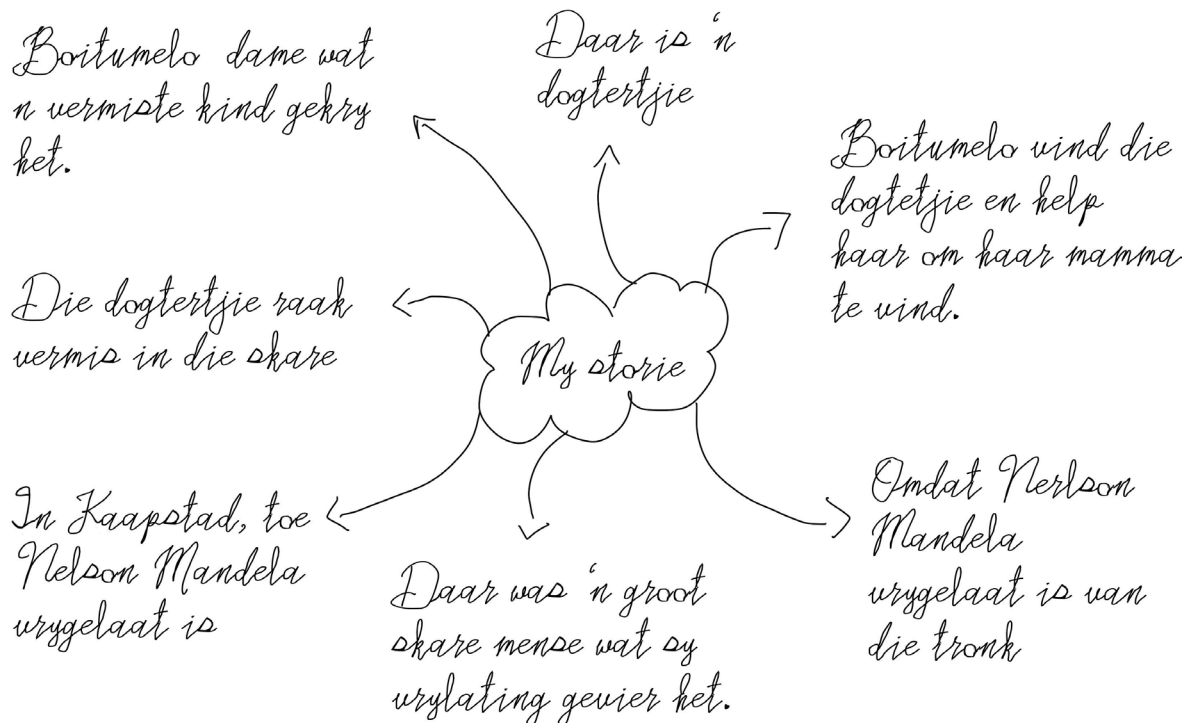 Boitumelo dame wat
n vermiste kind gekry
het.
Daar is 'n
dogtertjie
Boitumelo vind die
dogtetjie en help
haar om haar mamma
te vind.
Die dogtertjie raak
vermis in die skare
My storie
In Kaapstad, toe
Nelson Mandela
vrygelaat is
Daar was 'n groot
skare mense wat sy
vrylating gevier het.
Omdat Nerlson
Mandela
vrygelaat is van
die tronk